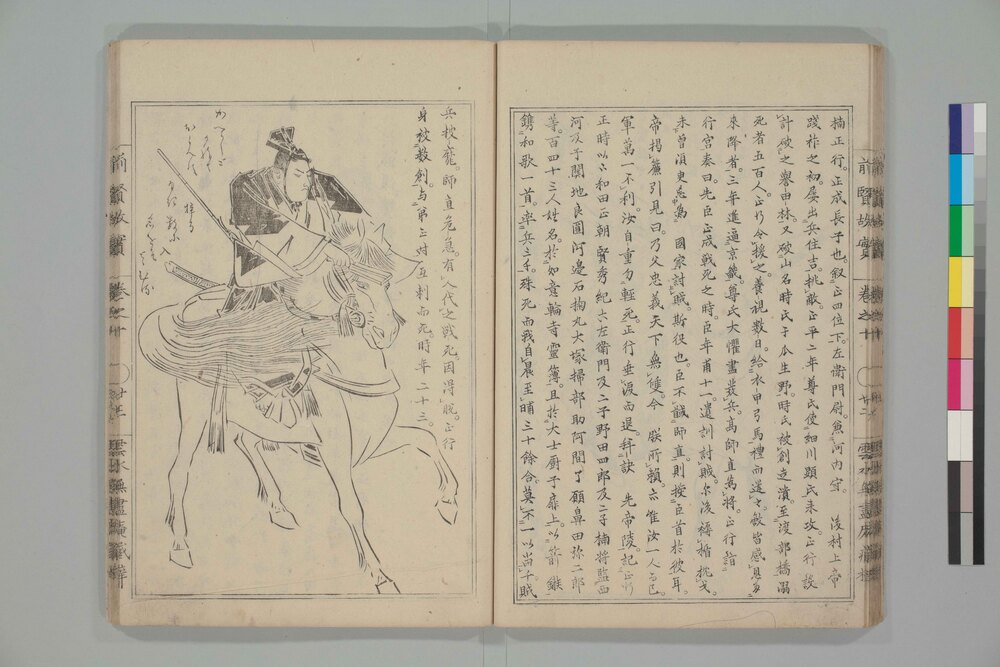 楠正行。正成長子也。叙正四位下。左衛門尉。兼河内守。 後村上帝
踐祚之初。屡出兵住吉。挑敵。正平二年尊氏使細川顕氏来攻。正行設
計破之誉田林。又破山名時氏于瓜生野。時氏被創走潰。至渡部橋溺
死者五百人。正行令援之。養視数日。給衣甲弓馬。禮而遣之。敵皆感恩
来降者。三年進逼京畿。尊氏大懼。盡発兵。高師直為将。正行詣
行宮奏曰。先臣正成戦死之時。臣年甫十一。遺訓討賊。
未曾須臾忘為 國家討賊。斯役也。臣不馘師直。則授臣首於彼耳。
帝掲簾引見曰。乃父忠義天下無儔。今 朕所頼亦惟汝一人而已。
軍萬一不利。汝自重勿軽死。正行垂涙而退。拜訣 先帝陵。記正行
正時以下和田正朝賢秀紀六左衛門及二子野田四郎及二子楠将監西
河及子関地良圓河邊石掬丸大塚掃部助阿間了願鼻田弥二郎
等百四十三人姓名。於如意輪寺霊簿。且於大士厨子扉上。以箭鏃
鐫和歌一首。率兵三千。殊死而戦。自晨至晡三十餘合。莫不一以当千。賊
兵披靡。師直危急。有人代之戦死。因得脱。正行
身被数創。与弟正時互刺而死。時年二十三。
かへらしと
かねて
おもへは
梓弓
なき数に
いる
名をそ
とゝむる
前賢故實 巻之十